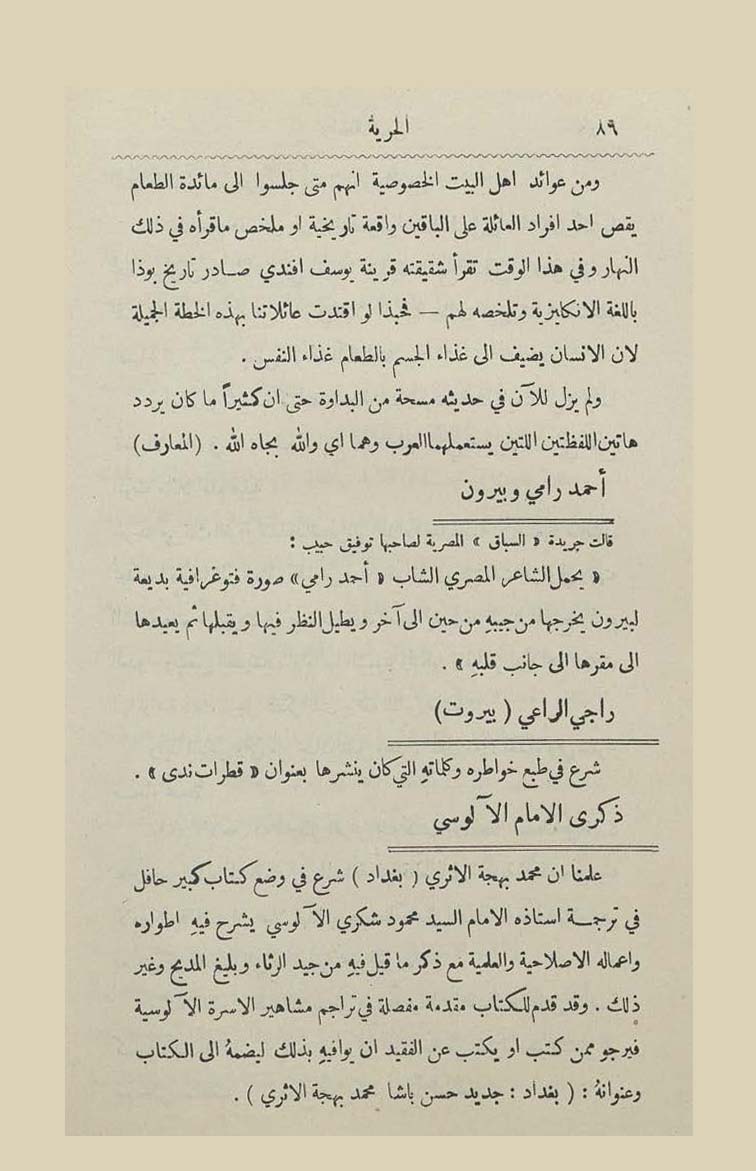 ٨٩ الحرية
ومن عوائد اهل البيت الخصوصية انهم متى جلسوا الى مائدة الطعام
يقص احد افراد العائلة على الباقين واقعة تاريخية او ملخص ماقرأه في ذلك
النهار وفي هذا الوقت تقرأ شقيقته قرينة يوسف افندي صادر تاريخ بوذا
باللغة الانكليزية وتلخصه لهم — فحبذا لو اقتدت عائلاتنا بهذه الخطة الجميلة
لان الانسان يضيف الى غذاء الجسم بالطعام غذاء النفس .
ولم يزل للآن في حديثه مسحة من البداوة حتى ان كثيراً ما كان يردد
هاتين اللفظتين اللتين يستعملهما العرب وهما اي والله بجاه الله . (المعارف)
أحمد رامي وبيرون
قالت جريدة « السباق » المصرية لصاحبها توفيق حبيب :
« يحمل الشاعر المصري الشاب « أحمد رامي» صورة فتوغرافية بديعة
لبيرون يخرجها من جيبهِ من حين الى آخر ويطيل النظر فيها ويقبلها ثم يعيدها
الى مقرها الى جانب قلبهِ » .
راجي الراعي ( بيروت)
شرع في طبع خواطره وكلماتهِ التي كان ينشرها بعنوان « قطرات ندى » .
ذكرى الامام الآلوسي
علمنا ان محمد بهجة الاثري ( بغداد ) شرع في وضع كتاب كبير حافل
في ترجمة استاذه الامام السيد محمود شكري الآلوسي يشرح فيهِ اطواره
واعماله الاصلاحية والعلمية مع ذكر ما قيل فيهِ من جيد الرثاء وبليغ المديح وغير
ذلك . وقد قدم للكتاب مقدمة مفصلة في تراجم مشاهير الاسرة الآلوسية
فيرجو ممن كتب او يكتب عن الفقيد ان يوافيهِ بذلك ليضمهُ الى الكتاب
وعنوانهُ : ( بغداد : جديد حسن باشا محمد بهجة الاثري ) .